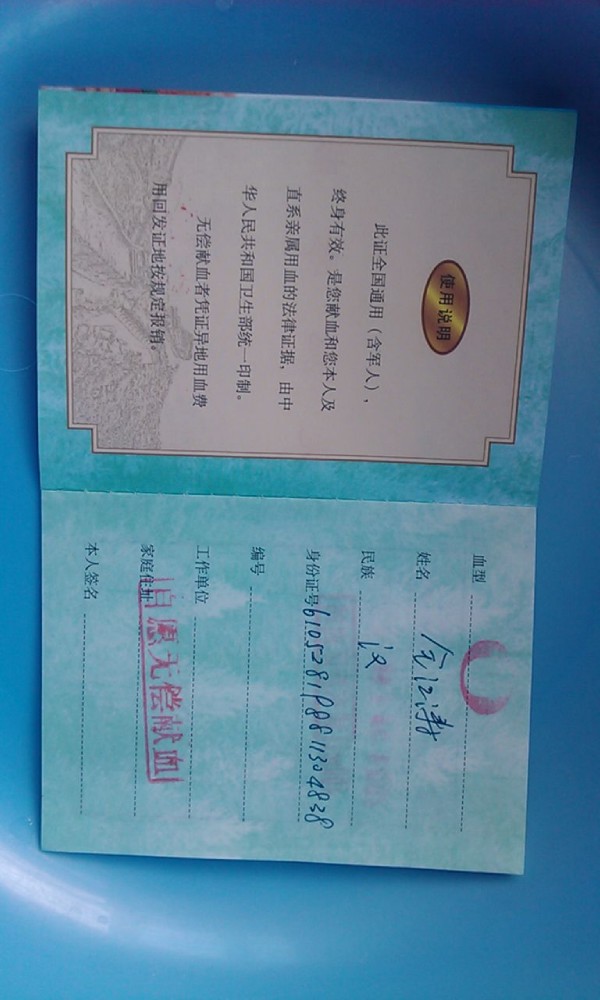 使用说明
此证全国通用（含军人），
终身有效。是您献血和您本人及
直系亲属用血的法律证据，由中
华人民共和国卫生部统一印制。
无偿献血者凭证异地用血费
用回发证地按规定报销。
血型 O
姓名 江涛
民族 汉
身份证号 610528198811304838
编号
工作单位
家庭住址
自愿无偿献血
本人签名